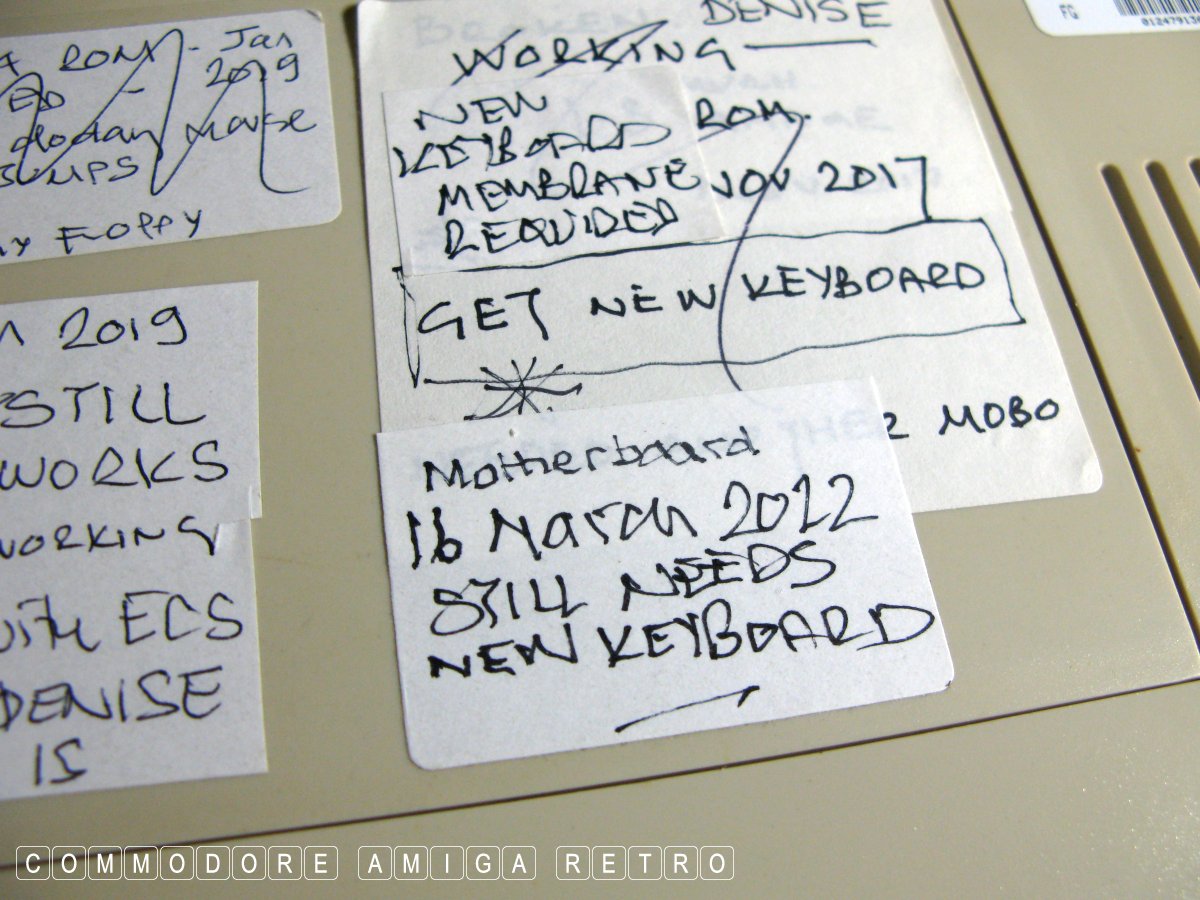 ROM - Jan
2019
Mouse
FLOPPY
2019
STILL
WORKS
WORKING
with ECS
DENISE
IS
DENISE
WORKING
NEW
KEYBOARD ROM
MEMBRANE NOV 2017
REQUIRED
GET NEW KEYBOARD
MOBO
Motherboard
16 March 2022
STILL NEEDS
NEW KEYBOARD
FG
COMMODORE AMIGA RETRO